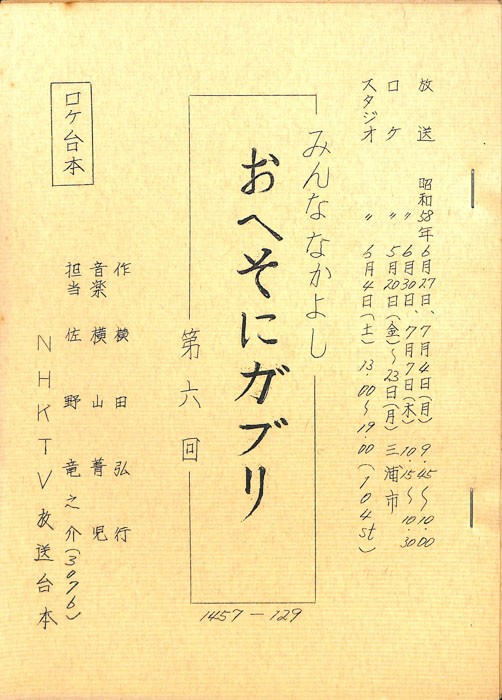 放送 昭和58年6月27日、7月4日(月) 9.45〜10.00
〃 6月30日、7月7日(木) 10.15〜10.30
ロケ 〃 5月20日(金)〜23日(月) 三浦市
スタジオ 〃 6月4日(土) 13.00〜19.00(104st)
みんななかよし
おへそにガブリ
第六回
1457-129
作 横田弘行
音楽 横山菁児
担当 佐野竜之介(3076)
ロケ台本
NHKTV放送台本